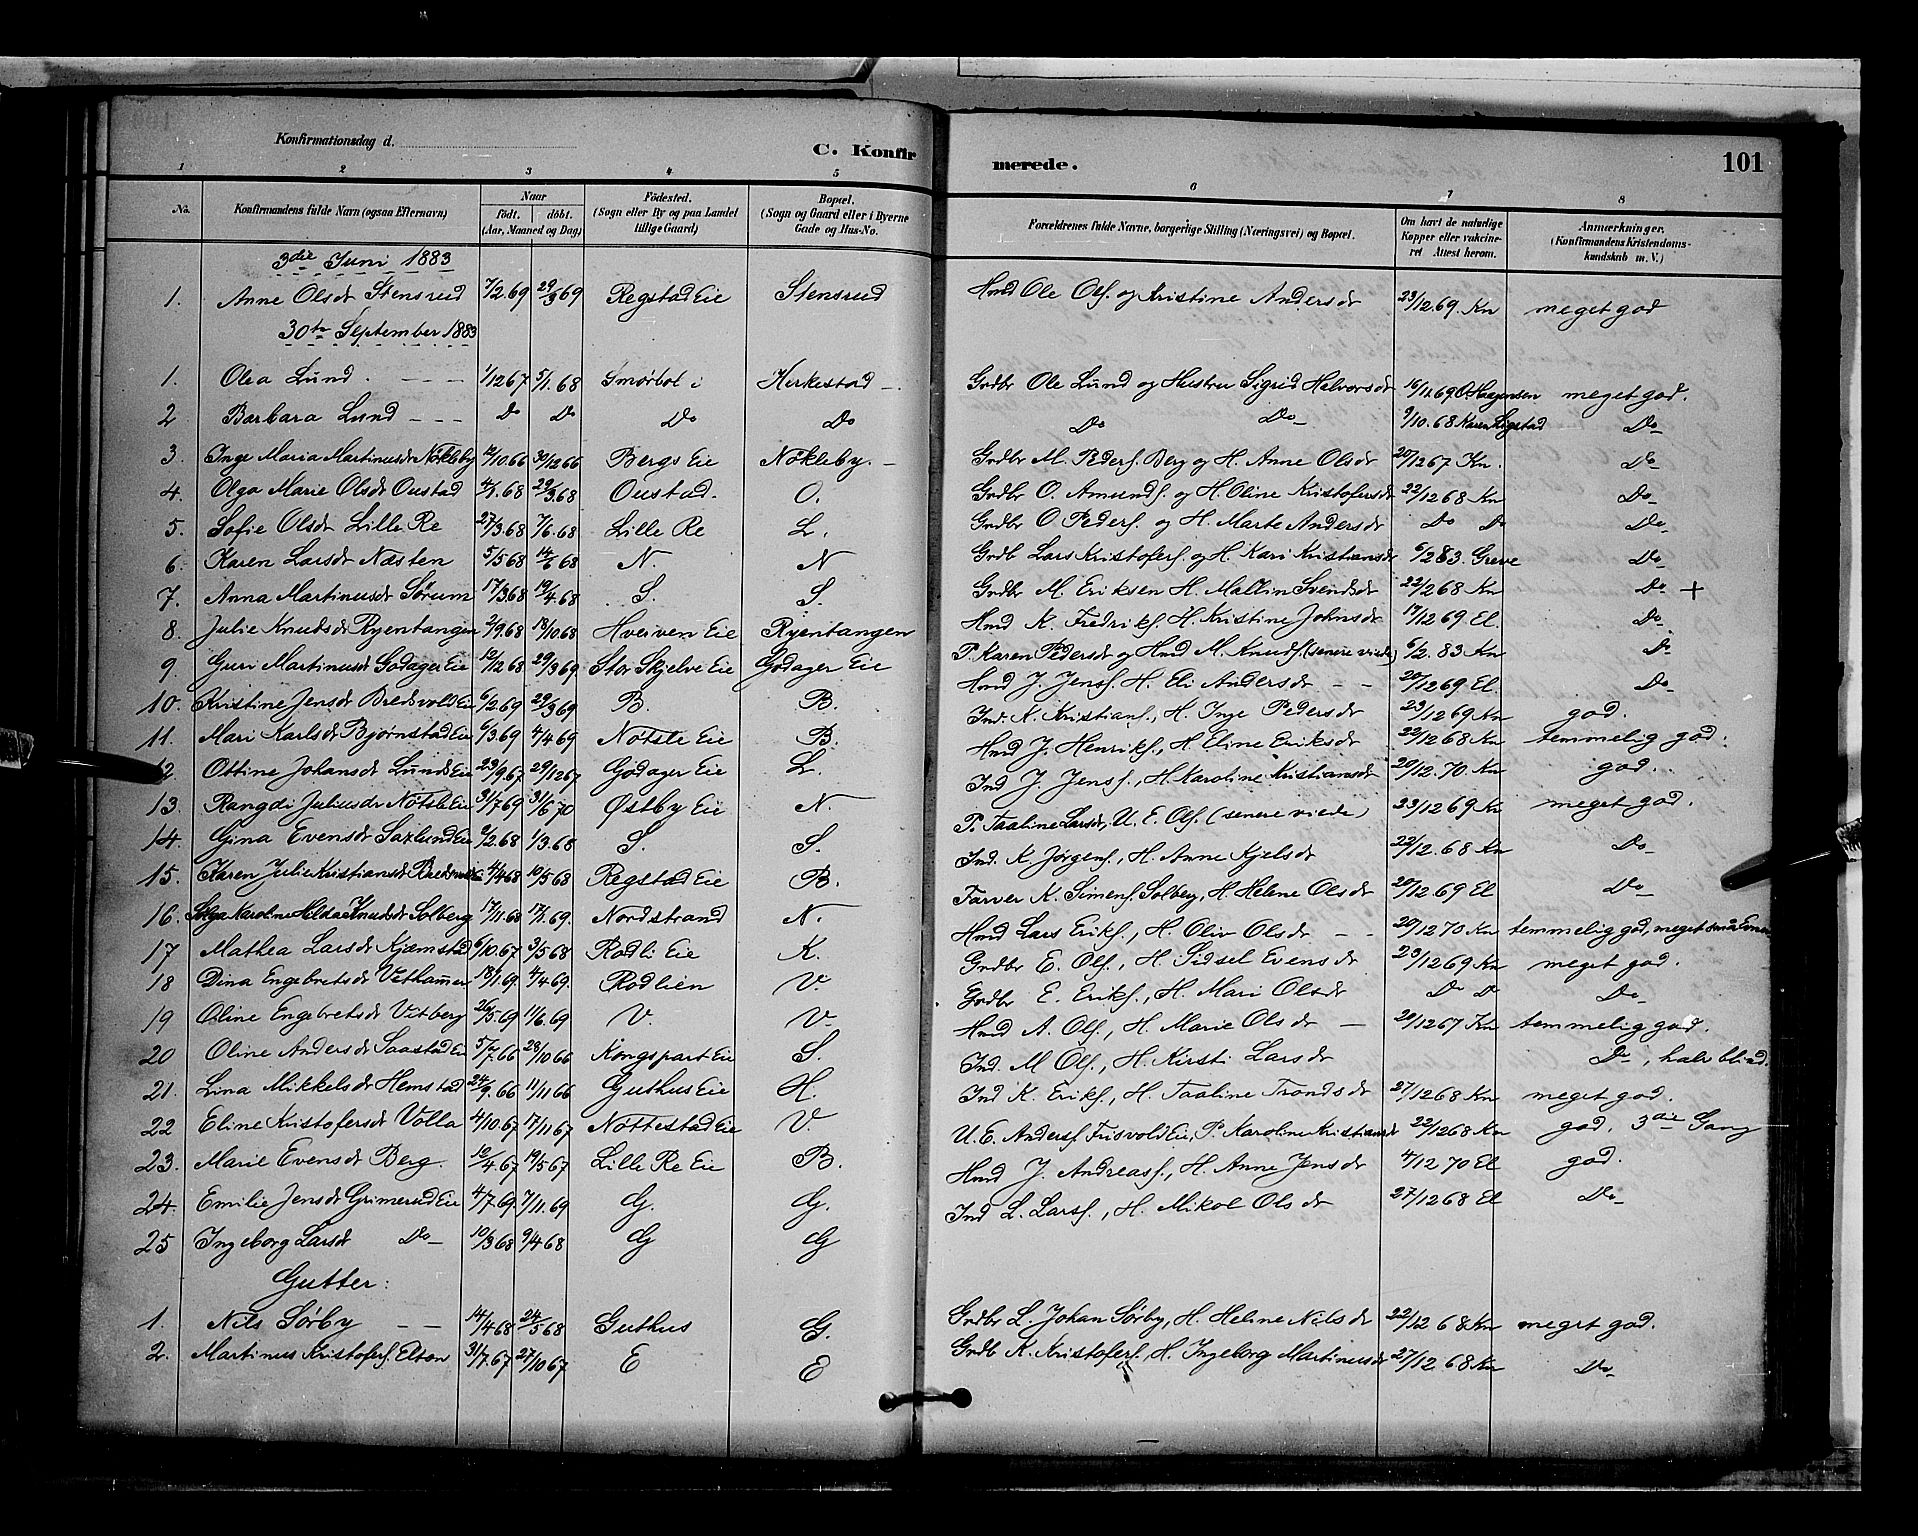 Konfirmationsdag d.
C. Konfirmerede.
101
1 2 3 4 5 6 7 8
No. Konfirmandens fulde Navn (ogsaa Efternavn) Naar født. døbt. (Aar, Maaned og Dag) Fødested. (Sogn eller By og paa Landet tillige Gaard) Bopæl. (Sogn og Gaard eller i Byerne Gade og Hus-No. Forældrenes fulde Navne, borgerlige Stilling (Næringsvei) og Bopæl. Om havt de naturlige Kopper eller vakcineret Attest herom. Anmærkninger. (Konfirmandens Kristendomskundskab m. V.)
3die Juni 1883
1. Anne Olsdt Stensrud 7/2 69 29/3 69 Regstad Eie Stensrud Hmd Ole Ols. og Kristine Andersdt 23/12 69. Kn meget god
30te September 1883
1. Olea Lund. 1/12 67 5/1. 68 Smørbøl i Kirkestad Grdbr Ole Lund og Hustru Sigrid Halvorsdt 16/12 69 O Haagensen meget god.
2 Barbara Lund Do Do Do Do Do Do 9/10. 68 Karen Ligstad Do
3. Inge Maria Martinusdt Nökleby 12/10 66 30/12 66 Bergs Eie Nökleby. Grdbr M. Peders. Berg og H. Anne Olsdt 20/12 67 Kn. Do
4. Olga Marie Olsdt Oustad 4/1. 68 29/3. 68 Oustad. O. Grdbr O. Amunds. og H. Oline Kristofersdt 22/12 68 Kn Do
5. Sofie Olsdt Lille Re 27/3. 68 7/6. 68 Lille Re L. Grdbr O Peders. og H. Marte Andersdt Do Do Do
6. Karen Larsdt Næsten 5/5 68 14/6 68 N. N Grdb Lars Kristofers. og H. Kari Kristiansdt 6/2 83. Greve Do
7. Anna Martinusdt Sørum 17/3 68 19/4. 68 S. S. Grdbr M. Eriksen H. Mallin Svendsdt 22/12 68 Kn Do +
8. Julie Knudsdt Ryentangen 2/9. 68 18/10 68 Hverven Eie Ryentangen Hmd K. Fredriks. H. Kristine Johnsdt 17/12 69 El Do
9. Guri Martinusdt Godager Eie 12/12 68 29/3 69 Stor Skjelve Eie Godager Eie P. Karen Pedersdt og Hmd M. Knuds. (senere viede) 6/2. 83 Kn Do
10. Kristine Jensdt Bredvold Eie 6/2 69 29/3 69 B. B. Hmd J. Jens. H. Eli Andersdt 20/12 69 El. Do
11. Mari Karlsdt Bjørnstad Eie 6/3 69 4/4 69 Nötsle Eie B. Ind. K. Kristians., H. Inge Pedersdt 23/12 69 Kn god.
12. Ottine Johansdt Lunds Eie 23/9. 67 29/12 67 Godager Eie L. Hmd J. Henriks., H. Eline Eriksdt 22/12 68 Kn temmelig god.
13. Rangdi Juliusdt Nötsle Eie 31/7 69 31/6 70 Østby Eie N. Ind J. Jens., H. Karoline Kristiansdt 20/12. 70 Kn god.
14. Gina Evensdt Saxlund Eie 9/2. 68 1/3. 68 S. S. P. Taaline Larsdt, U. E. Ols. (senere viede) 23/12 69 Kn meget god.
15. Karen Julie Kristiansdt 4/4 68 10/5 68 Regstad Eie B. Ind. K Jørgens., H. Anne Kjelsdt 22/12. 68 Kn Do
16. Karoline Hilda Knudsdt Solberg 17/11. 68 17/1. 69. Nordstrand N. Farver K. Simens. Solberg, H. Helene Olsdt 20/12 69 El Do
17 Mathea Larsdt Kjæmstad 6/10. 67 3/5 68 Rodli Eie K. Hmd Lars Eriks., H. Oliv Olsdt 20/12 70 Kn temmelig god, meget små Evner
18 Dina Engebretsdt Vethammer 18/1 69. 4/4 69. Rodlien V. Grdbr E. Ols., H. Sidsel Evensdt 23/12 69 Kn meget god.
19 Oline Engebretsdt Vitberg 26/5 69 11/6. 69 V. V. Grdbr E. Eriks., H. Mari Olsdt Do Do Do
20 Oline Andersdt Saastad Eie 5/7. 66 28/10 66 Kongspart Eie S. Hmd A. Ols., H. Marie Olsdt 20/12 67 Kn temmelig god.
21. Lina Mikkelsdt Hemstad 24/9. 66 11/11 66 Guthus Eie H. Ind. M Ols., H. Kirsti Larsdt Do, halv blind.
22 Eline Kristofersdt Volla 4/10. 67 17/11 67 Nöttestad Eie V. Ind K. Eriks., H. Taaline Trondsdt 27/12 68 Kn meget god.
23. Marie Evensdt Berg. 12/4. 67 19/5 67 Lille Re Eie B. U. E. Anders. Frisvold Eie, P. Karoline Kristiansdt 22/12 68 Kn god, 3die Gang
24. Emilie Jensdt Grimerud Eie 4/7. 69. 7/11. 69 G. G. Hmd J. Andreas., H. Anne Jensdt 4/12 70 El god.
25 Ingeborg Larsdt Do 10/3 68 9/4 68 G G Ind L. Lars., H. Mikol Olsdt 27/12 68 El Do
Gutter:
1. Nils Sørby 14/4 68 24/5 68 Guthus G. Grdbr L. Johan Sørby, H. Helene Nilsdt 22/12 68 Kn meget god.
2. Martinus Kristofers. Elton 31/7. 67 27/10 67 E E Grdb K. Kristofers., H. Ingeborg Martinusdt 27/12. 68 Kn Do